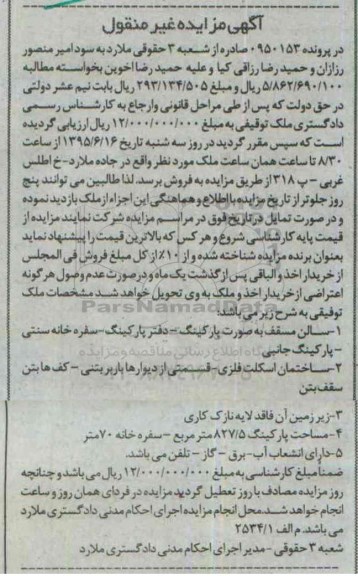 آگهی مزایده غیر منقول
در پرونده ۰۹۵۰۱۵۳ صادره از شعبه ۳ حقوقی ملارد به سود امیر منصور
رزازان و حمید رضا رزاقی کیا و علیه حمید رضا اخوین بخواسته مطالبه
۵/۸۶۲/۶۹۰/۱۰۰ ریال و مبلغ ۲۹۳/۱۳۴/۵۰۵ ریال بابت نیم عشر دولتی
در حق دولت که پس از طی مراحل قانونی وارجاع به کارشناس رسمی
دادگستری ملک توقیفی به مبلغ ۱۲/۰۰۰/۰۰۰/۰۰۰ ریال ارزیابی گردیده
است که سپس مقرر گردید در روز سه شنبه تاریخ ۱۳۹۵/۶/۱۶ از ساعت
۸/۳۰ تا ساعت همان ساعت ملک مورد نظر واقع در جاده ملارد-خ اطلس
غربی - پ ۳۱۸ از طریق مزایده به فروش برسد. لذا طالبین می توانند پنج
روز جلوتر از تاریخ مزایده با اطلاع و هماهنگی این اجراء از ملک بازدید نموده
و در صورت تمایل در تاریخ فوق در مراسم مزایده شرکت نمایند مزایده از
قیمت پایه کارشناسی شروع و هر کس که بالاترین قیمت را پیشنهاد نماید
بعنوان برنده مزایده شناخته شده و از ۱۰٪ از کل مبلغ فروش فی المجلس
از خریدار اخذ و الباقی پس از گذشت یک ماه و در صورت عدم وصول هر گونه
اعتراضی از خریدار اخذ و ملک به وی تحویل خواهد شد مشخصات ملک
توقیفی به شرح زیر می باشد:
۱-سالن مسقف به صورت پارکینگ - دفتر پارکینگ-سفره خانه سنتی
- پارکینگ جانبی
۲-ساختمان اسکلت فلزی- قسمتی از دیوارها بار بریتنی - کف ها بتن
سقف بتن
۳-زیر زمین آن فاقد لایه نازک کاری
۴-مساحت پارکینگ ۸۲۷/۵ متر مربع -سفره خانه ۷۰ متر
۵-دارای انشعاب آب-برق - گاز - تلفن می باشد.
ضمنا مبلغ کارشناسی به مبلغ ۱۲/۰۰۰/۰۰۰/۰۰۰ ریال می باشد و چنانچه
روز مزایده مصادف با روز تعطیل گردید مزایده در فردای همان روز و ساعت
انجام خواهد شد محل انجام مزایده اجرای احکام مدنی دادگستری ملارد
می باشد. م الف ۲۵۳۴/۱
شعبه ۳ حقوقی - مدیر اجرای احکام مدنی دادگستری ملارد
ParsNamadData